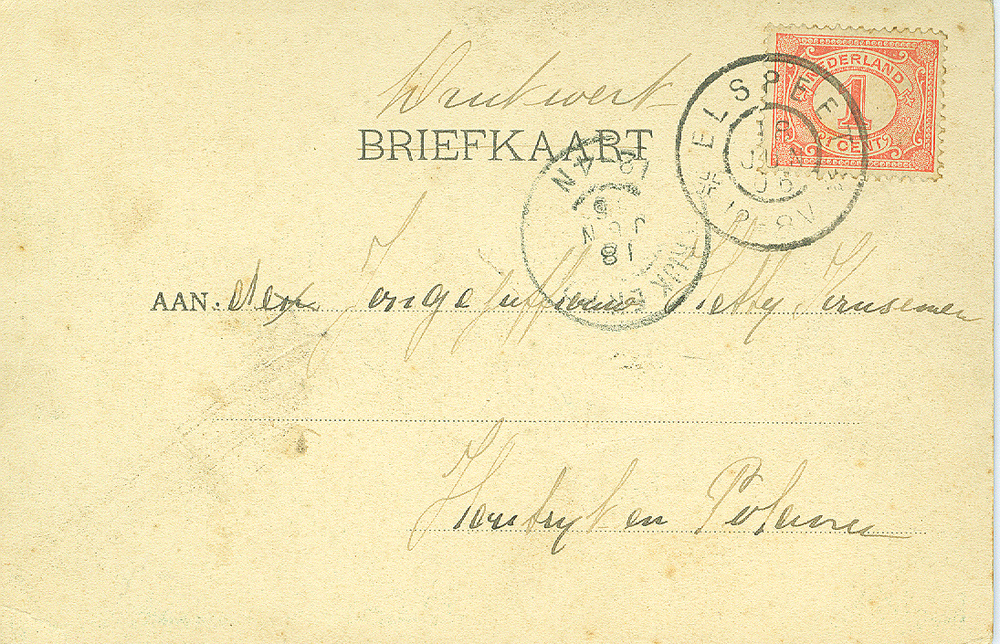 Drukwerk
BRIEFKAART
NEDERLAND
1
1 CENT
ELSPEET
JUN
06
12-8V
18
JUN
06
AAN: den Jonge Juffrouw Hetty Krusemen
Houtryk en Polanen